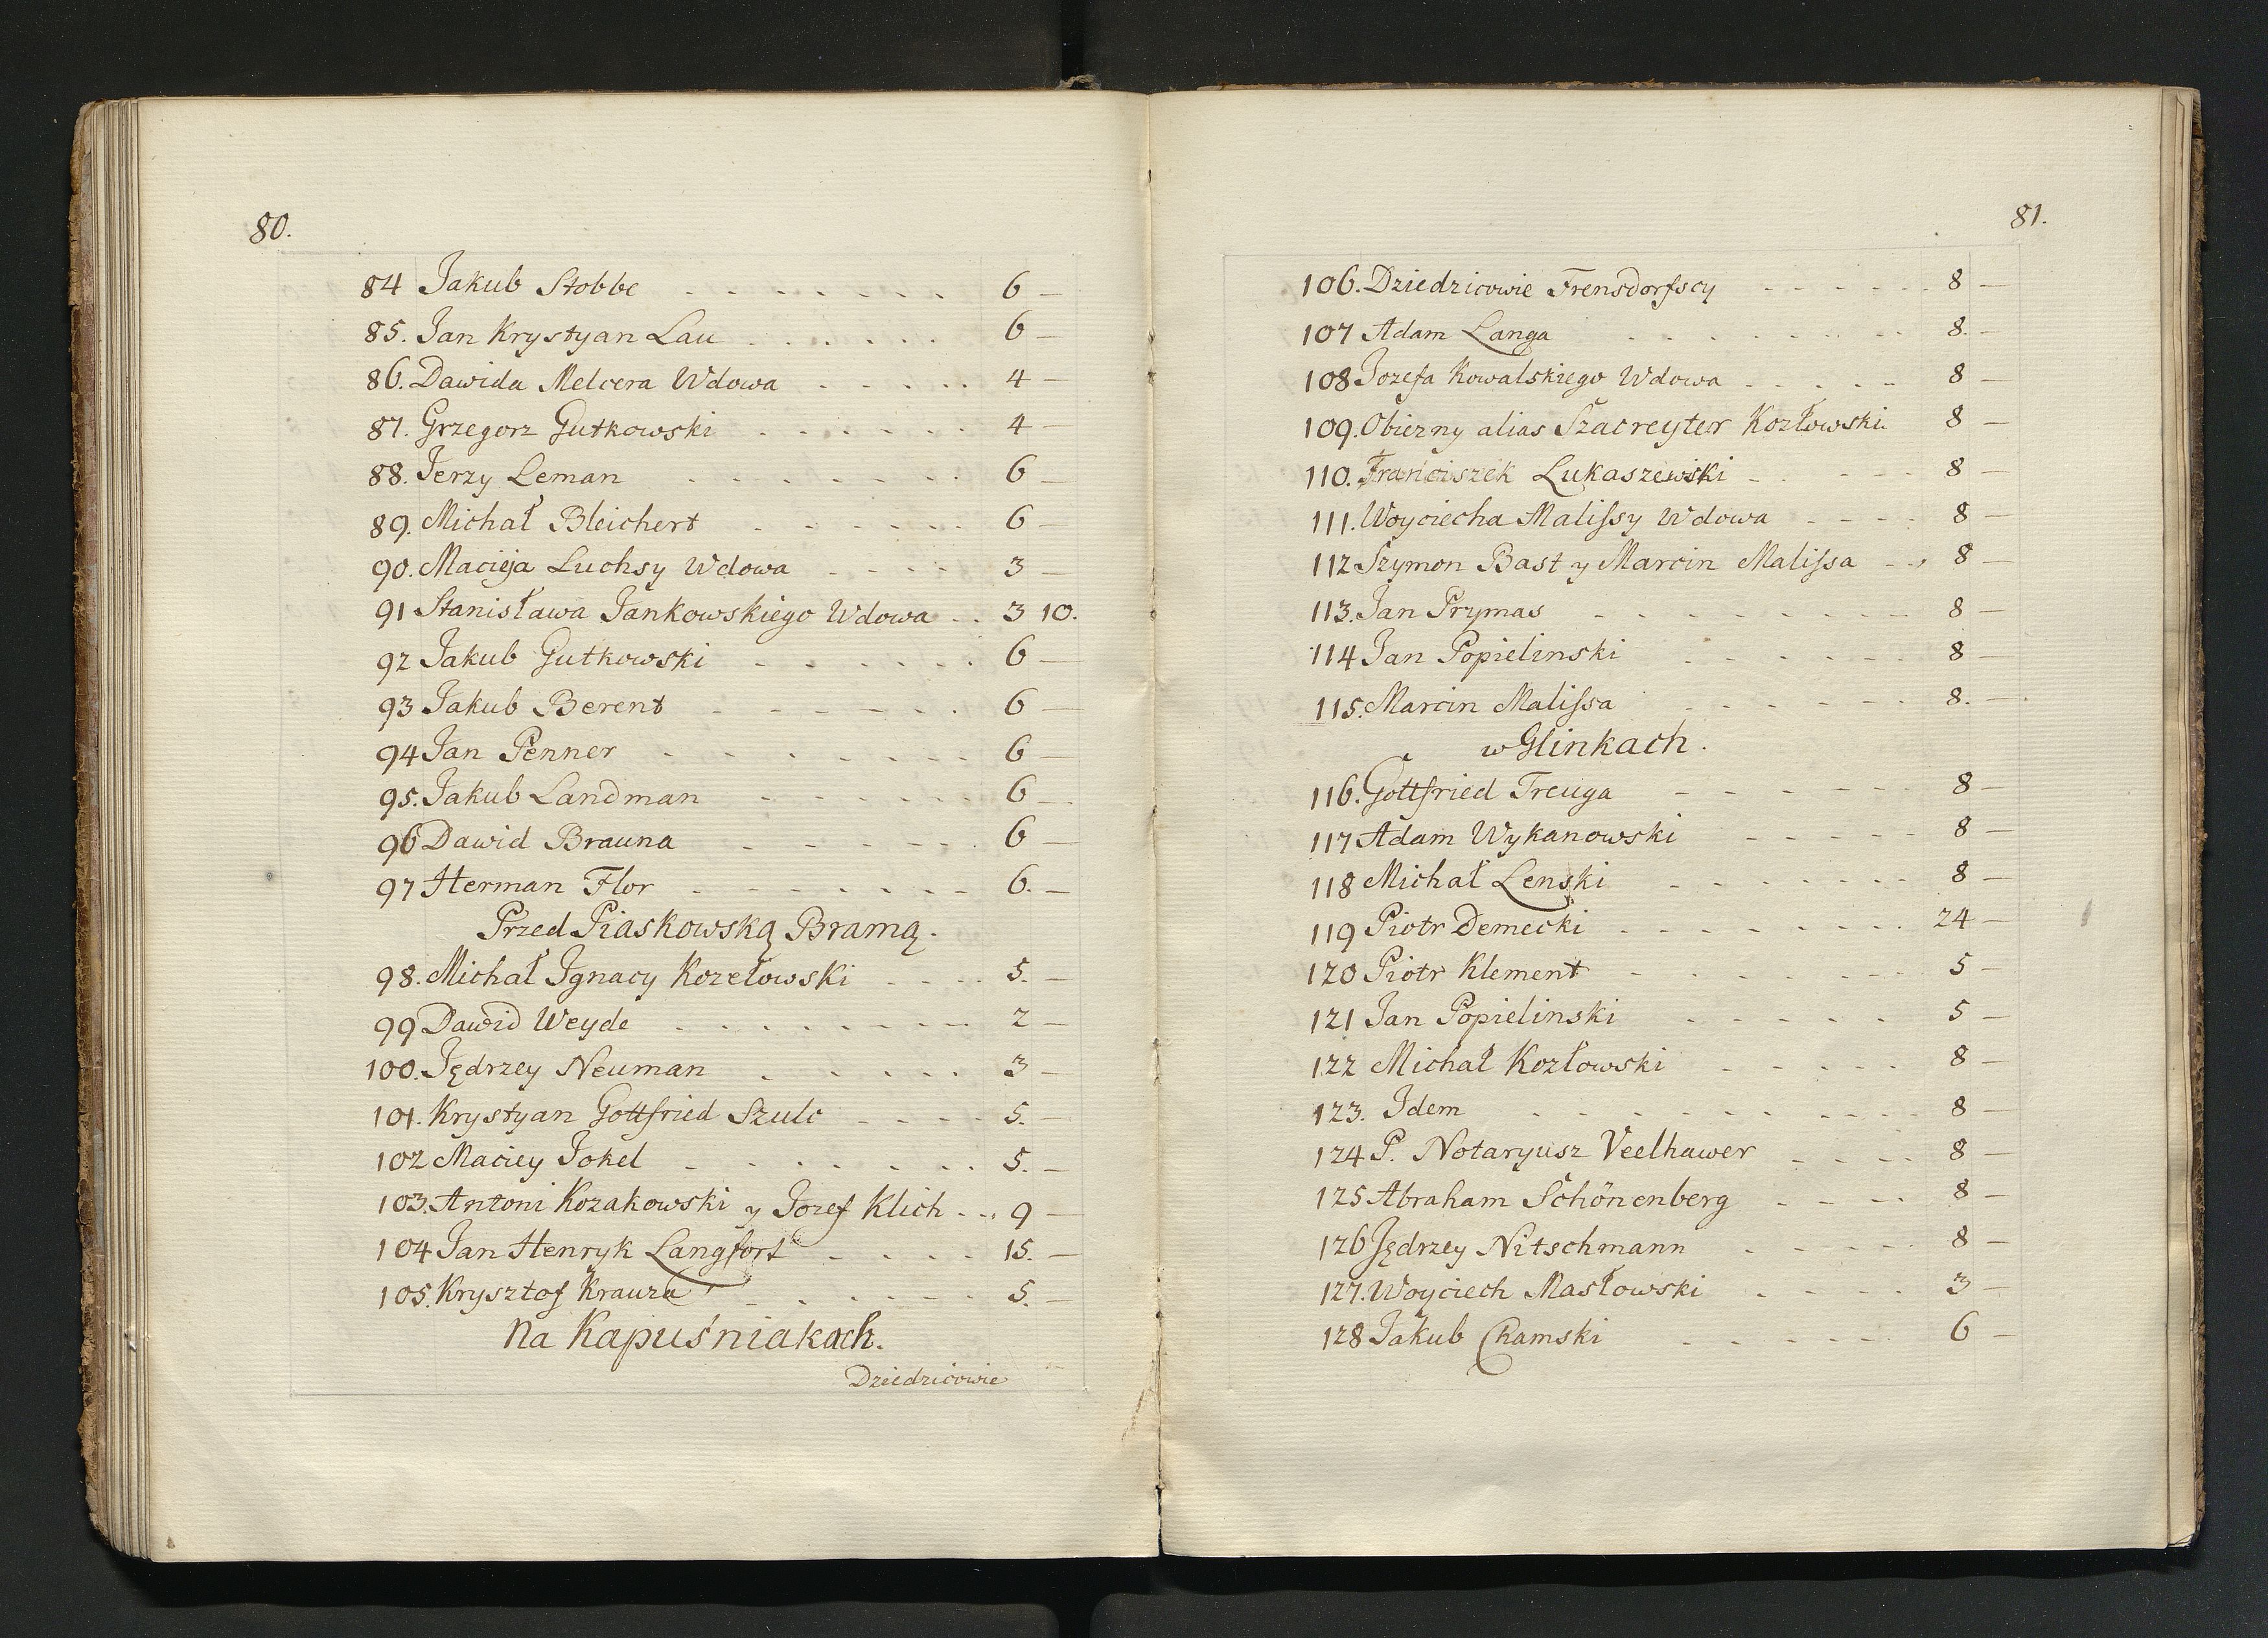 80.
84 Jakub Stobbe - - - - - - - 6 -
85. Jan Krystyan Lau - - - - - - 6 -
86. Dawida Melcera Wdowa - - - - - 4 -
87. Grzegorz Gutkowski - - - - - - 4 -
88. Jerzy Leman - - - - - - - 6 -
89. Michał Bleichert - - - - - - 6 -
90. Macieja Luchsy Wdowa - - - - 3 -
91 Stanisława Jankowskiego Wdowa - - 3 10.
92 Jakub Gutkowski - - - - - - 6 -
93 Jakub Berent - - - - - - 6 -
94 Jan Penner - - - - - - - 6 -
95. Jakub Landman - - - - - - 6 -
96 Dawid Brauna - - - - - - 6 -
97 Herman Flor - - - - - - - 6. -
Przed Piaskowską Bramą.
98. Michał Ignacy Kozełowski - - - - 5. -
99 Dawid Weyde - - - - - - - - 2 -
100. Jędrzey Neuman - - - - - 3 -
101. Krystyan Gottfried Szulc - - - - 5. -
102 Maciey Jokel - - - - - - - 5. -
103. Antoni Kozakowski y Jozef Klich - - 9 -
104 Jan Henryk Langfort - - - - 15. -
105. Krysztof Krauza - - - - - - 5. -
Na Kapuśniakach.
Dziedzicowie
81.
106. Dziedzicowie Frensdorfscy - - - - - - 8 -
107 Adam Langa - - - - - - - 8. -
108 Jozefa Kowalskiego Wdowa - - - - - 8 -
109. Obiezny alias Szacreyter Kozłowski. 8 -
110. Franciszek Lukaszewski - - - - - 8 -
111. Woyciecha Malissy Wdowa - - - - 8 -
112 Szymon Bast y Marcin Malissa - - 8 -
113. Jan Prymas - - - - - - - - 8 -
114 Jan Popielinski - - - - - - 8 -
115. Marcin Malissa - - - - - - 8. -
w Glinkach.
116. Gottfried Treuga - - - - - - 8 -
117 Adam Wykanowski - - - - - 8 -
118 Michał Lenski - - - - - - - 8 -
119 Piotr Demecki - - - - - - - - 24 -
120 Piotr Klement - - - - - - - 5 -
121 Jan Popielinski - - - - - 5 -
122 Michał Kozłowski - - - - - 8 -
123. Idem - - - - - - - - - 8 -
124 P. Notaryusz Veelhawer - - - - 8 -
125 Abraham Schönenberg - - - - 8 -
126 Jędrzey Nitschmann - - - - 8 -
127. Woyciech Masłowski - - - - 3 -
128 Jakub Chamski - - - - - 6 -